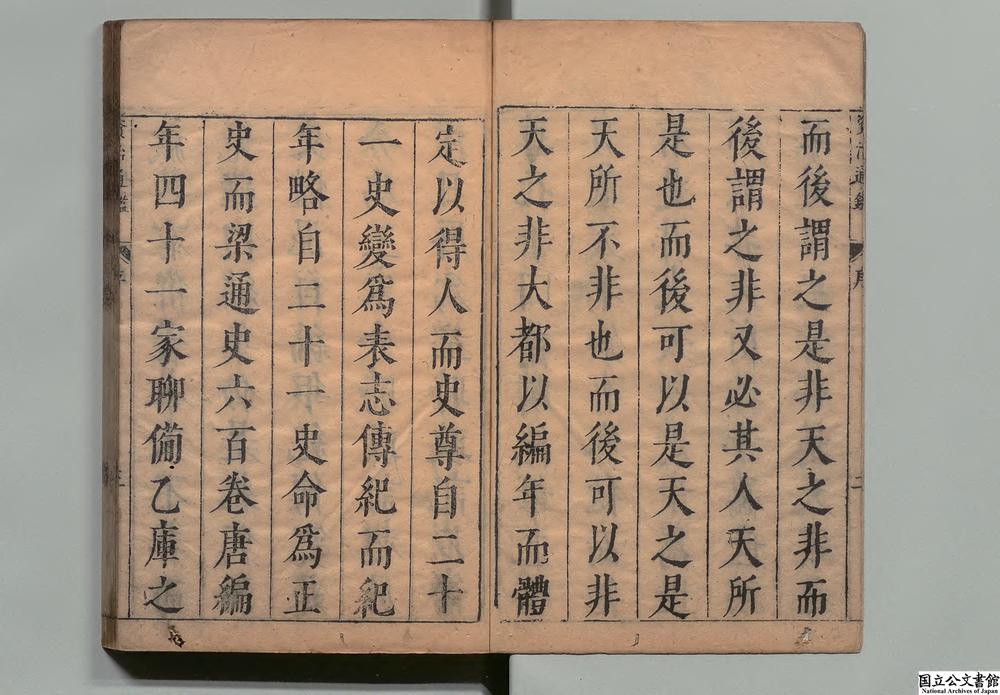 資治通鑑 序 二
而後謂之是非天之非而
後謂之非又必其人天所
是也而後可以是天之是
天所不非也而後可以非
天之非大都以編年而體
定以得人而史尊自二十
一史變爲表志傳紀而紀
年略自二十一史命爲正
史而梁通史六百卷唐編
年四十一家聊備乙庫之
資治通鑑 序
国立公文書館
National Archives of Japan